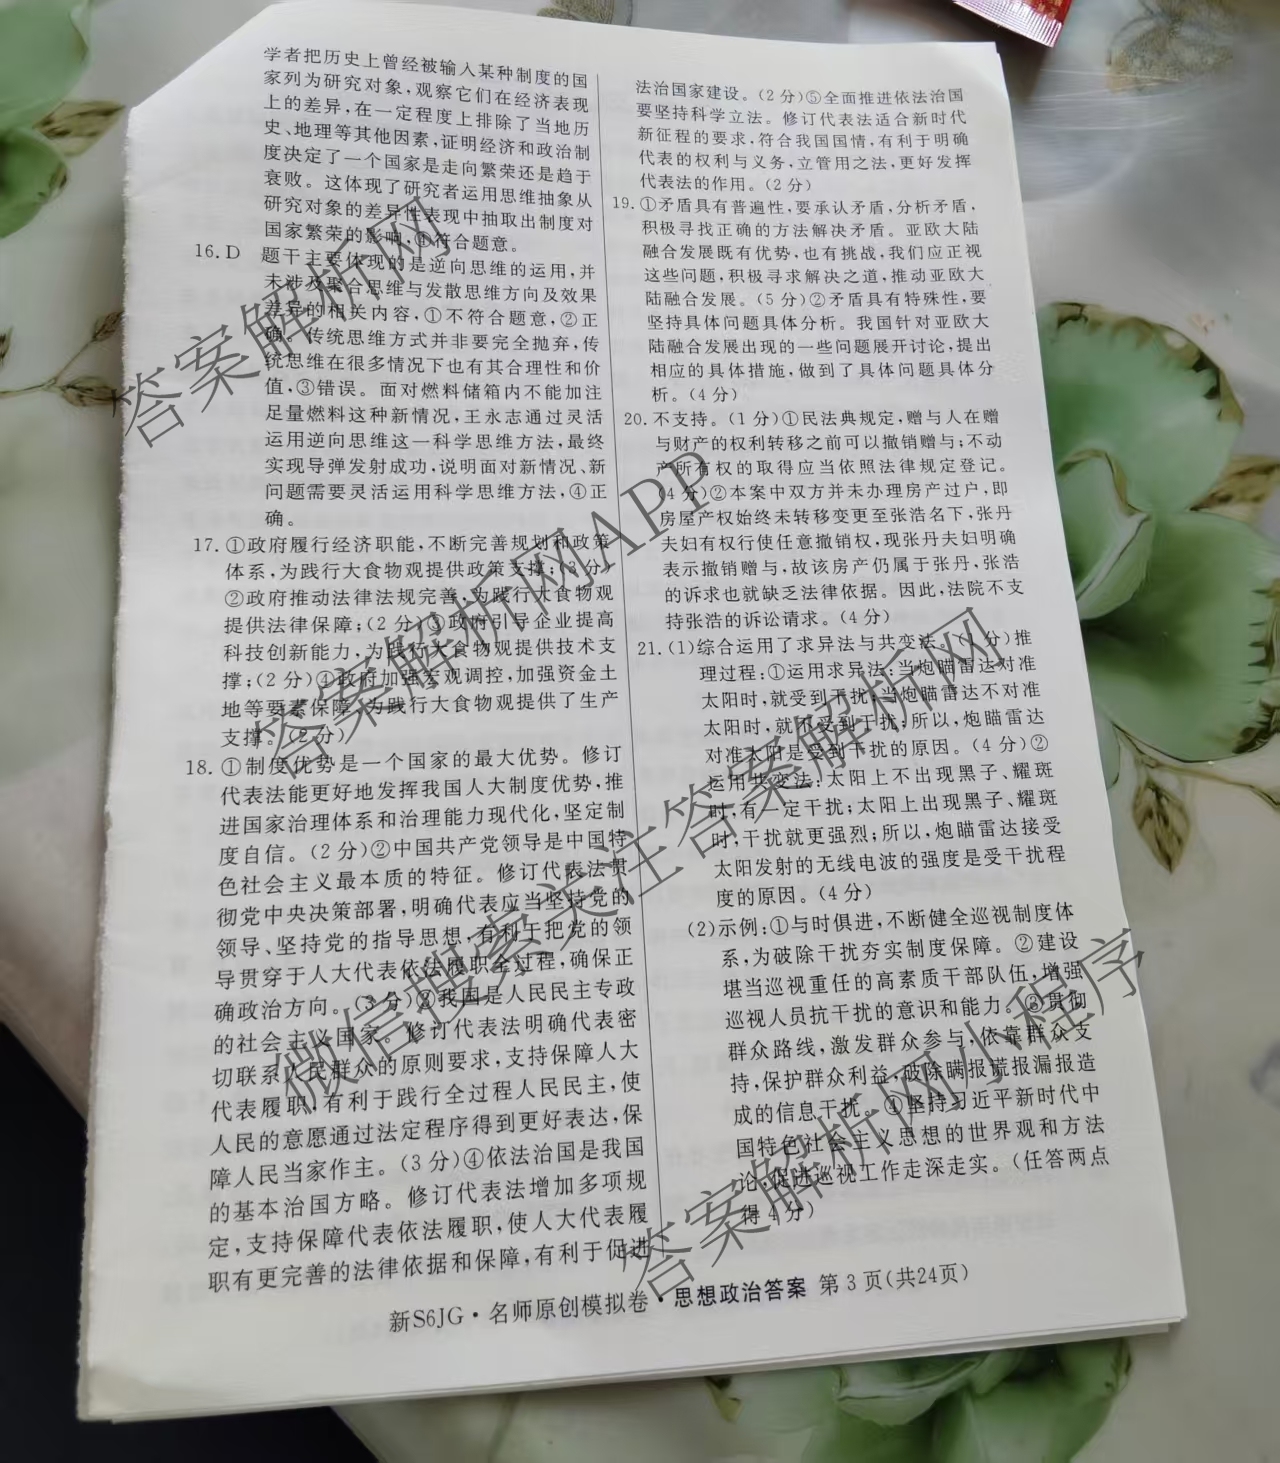 学者把历史上曾经被输入某种制度的国
家列为研究对象,观察它们在经济表现
上的差异,在一定程度上排除了当地历
史、地理等其他因素,证明经济和政治制
度决定了一个国家是走向繁荣还是趋于
衰败。这体现了研究者运用思维抽象从
研究对象的差异性表现中抽取出制度对
国家繁荣的影响,④符合题意。
16. D 题干主要体现的是逆向思维的运用,并
未涉及聚合思维与发散思维方向及效果
差异的相关内容,①不符合题意,②正
确。传统思维方式并非要完全抛弃,传
统思维在很多情况下也有其合理性和价
值,③错误。面对燃料储箱内不能加注
足量燃料这种新情况,王永志通过灵活
运用逆向思维这一科学思维方法,最终
实现导弹发射成功,说明面对新情况、新
问题需要灵活运用科学思维方法,④正
确。
17. ①政府履行经济职能,不断完善规划和政策
体系,为践行大食物观提供政策支撑;(3分)
②政府推动法律法规完善,为践行大食物观
提供法律保障;(2分)③政府引导企业提高
科技创新能力,为践行大食物观提供技术支
撑;(2分)④政府加强宏观调控,加强资金土
地等要素保障,为践行大食物观提供了生产
支撑。(2分)
18. ①制度优势是一个国家的最大优势。修订
代表法能更好地发挥我国人大制度优势,推
进国家治理体系和治理能力现代化,坚定制
度自信。(2分)②中国共产党领导是中国特
色社会主义最本质的特征。修订代表法贯
彻党中央决策部署,明确代表应当坚持党的
领导、坚持党的指导思想,有利于把党的领
导贯穿于人大代表依法履职全过程,确保正
确政治方向。(3分)③我国是人民民主专政
的社会主义国家。修订代表法明确代表密
切联系人民群众的原则要求,支持保障人大
代表履职,有利于践行全过程人民民主,使
人民的意愿通过法定程序得到更好表达,保
障人民当家作主。(3分)④依法治国是我国
的基本治国方略。修订代表法增加多项规
定,支持保障代表依法履职,使人大代表履
职有更完善的法律依据和保障,有利于促进
法治国家建设。(2分)⑤全面推进依法治国
要坚持科学立法。修订代表法适合新时代
新征程的要求,符合我国国情,有利于明确
代表的权利与义务,立管用之法,更好发挥
代表法的作用。(2分)
19. ①矛盾具有普遍性,要承认矛盾,分析矛盾,
积极寻找正确的方法解决矛盾。亚欧大陆
融合发展既有优势,也有挑战,我们应正视
这些问题,积极寻求解决之道,推动亚欧大
陆融合发展。(5分)②矛盾具有特殊性,要
坚持具体问题具体分析。我国针对亚欧大
陆融合发展出现的一些问题展开讨论,提出
相应的具体措施,做到了具体问题具体分
析。(4分)
20. 不支持。(1分)①民法典规定,赠与人在赠
与财产的权利转移之前可以撤销赠与;不动
产所有权的取得应当依照法律规定登记。
(4分)②本案中双方并未办理房产过户,即
房屋产权始终未转移变更至张浩名下,张丹
夫妇有权行使任意撤销权,现张丹夫妇明确
表示撤销赠与,故该房产仍属于张丹,张浩
的诉求也就缺乏法律依据。因此,法院不支
持张浩的诉讼请求。(4分)
21. (1)综合运用了求异法与共变法。(1分)推
理过程:①运用求异法:当炮瞄雷达对准
太阳时,就受到干扰;当炮瞄雷达不对准
太阳时,就不受到干扰;所以,炮瞄雷达
对准太阳是受到干扰的原因。(4分)②
运用共变法:太阳上不出现黑子、耀斑
时,有一定干扰;太阳上出现黑子、耀斑
时,干扰就更强烈;所以,炮瞄雷达接受
太阳发射的无线电波的强度是受干扰程
度的原因。(4分)
(2)示例:①与时俱进,不断健全巡视制度体
系,为破除干扰夯实制度保障。②建设
堪当巡视重任的高素质干部队伍,增强
巡视人员抗干扰的意识和能力。③贯彻
群众路线,激发群众参与,依靠群众支
持,保护群众利益,破除瞒报谎报漏报造
成的信息干扰。④坚持习近平新时代中
国特色社会主义思想的世界观和方法
论,促进巡视工作走深走实。(任答两点
得4分)
新S6JG·名师原创模拟卷·思想政治答案 第3页(共24页)
答案解析网
答案解析网APP
微信搜索关注答案解析网
答案解析网小程序